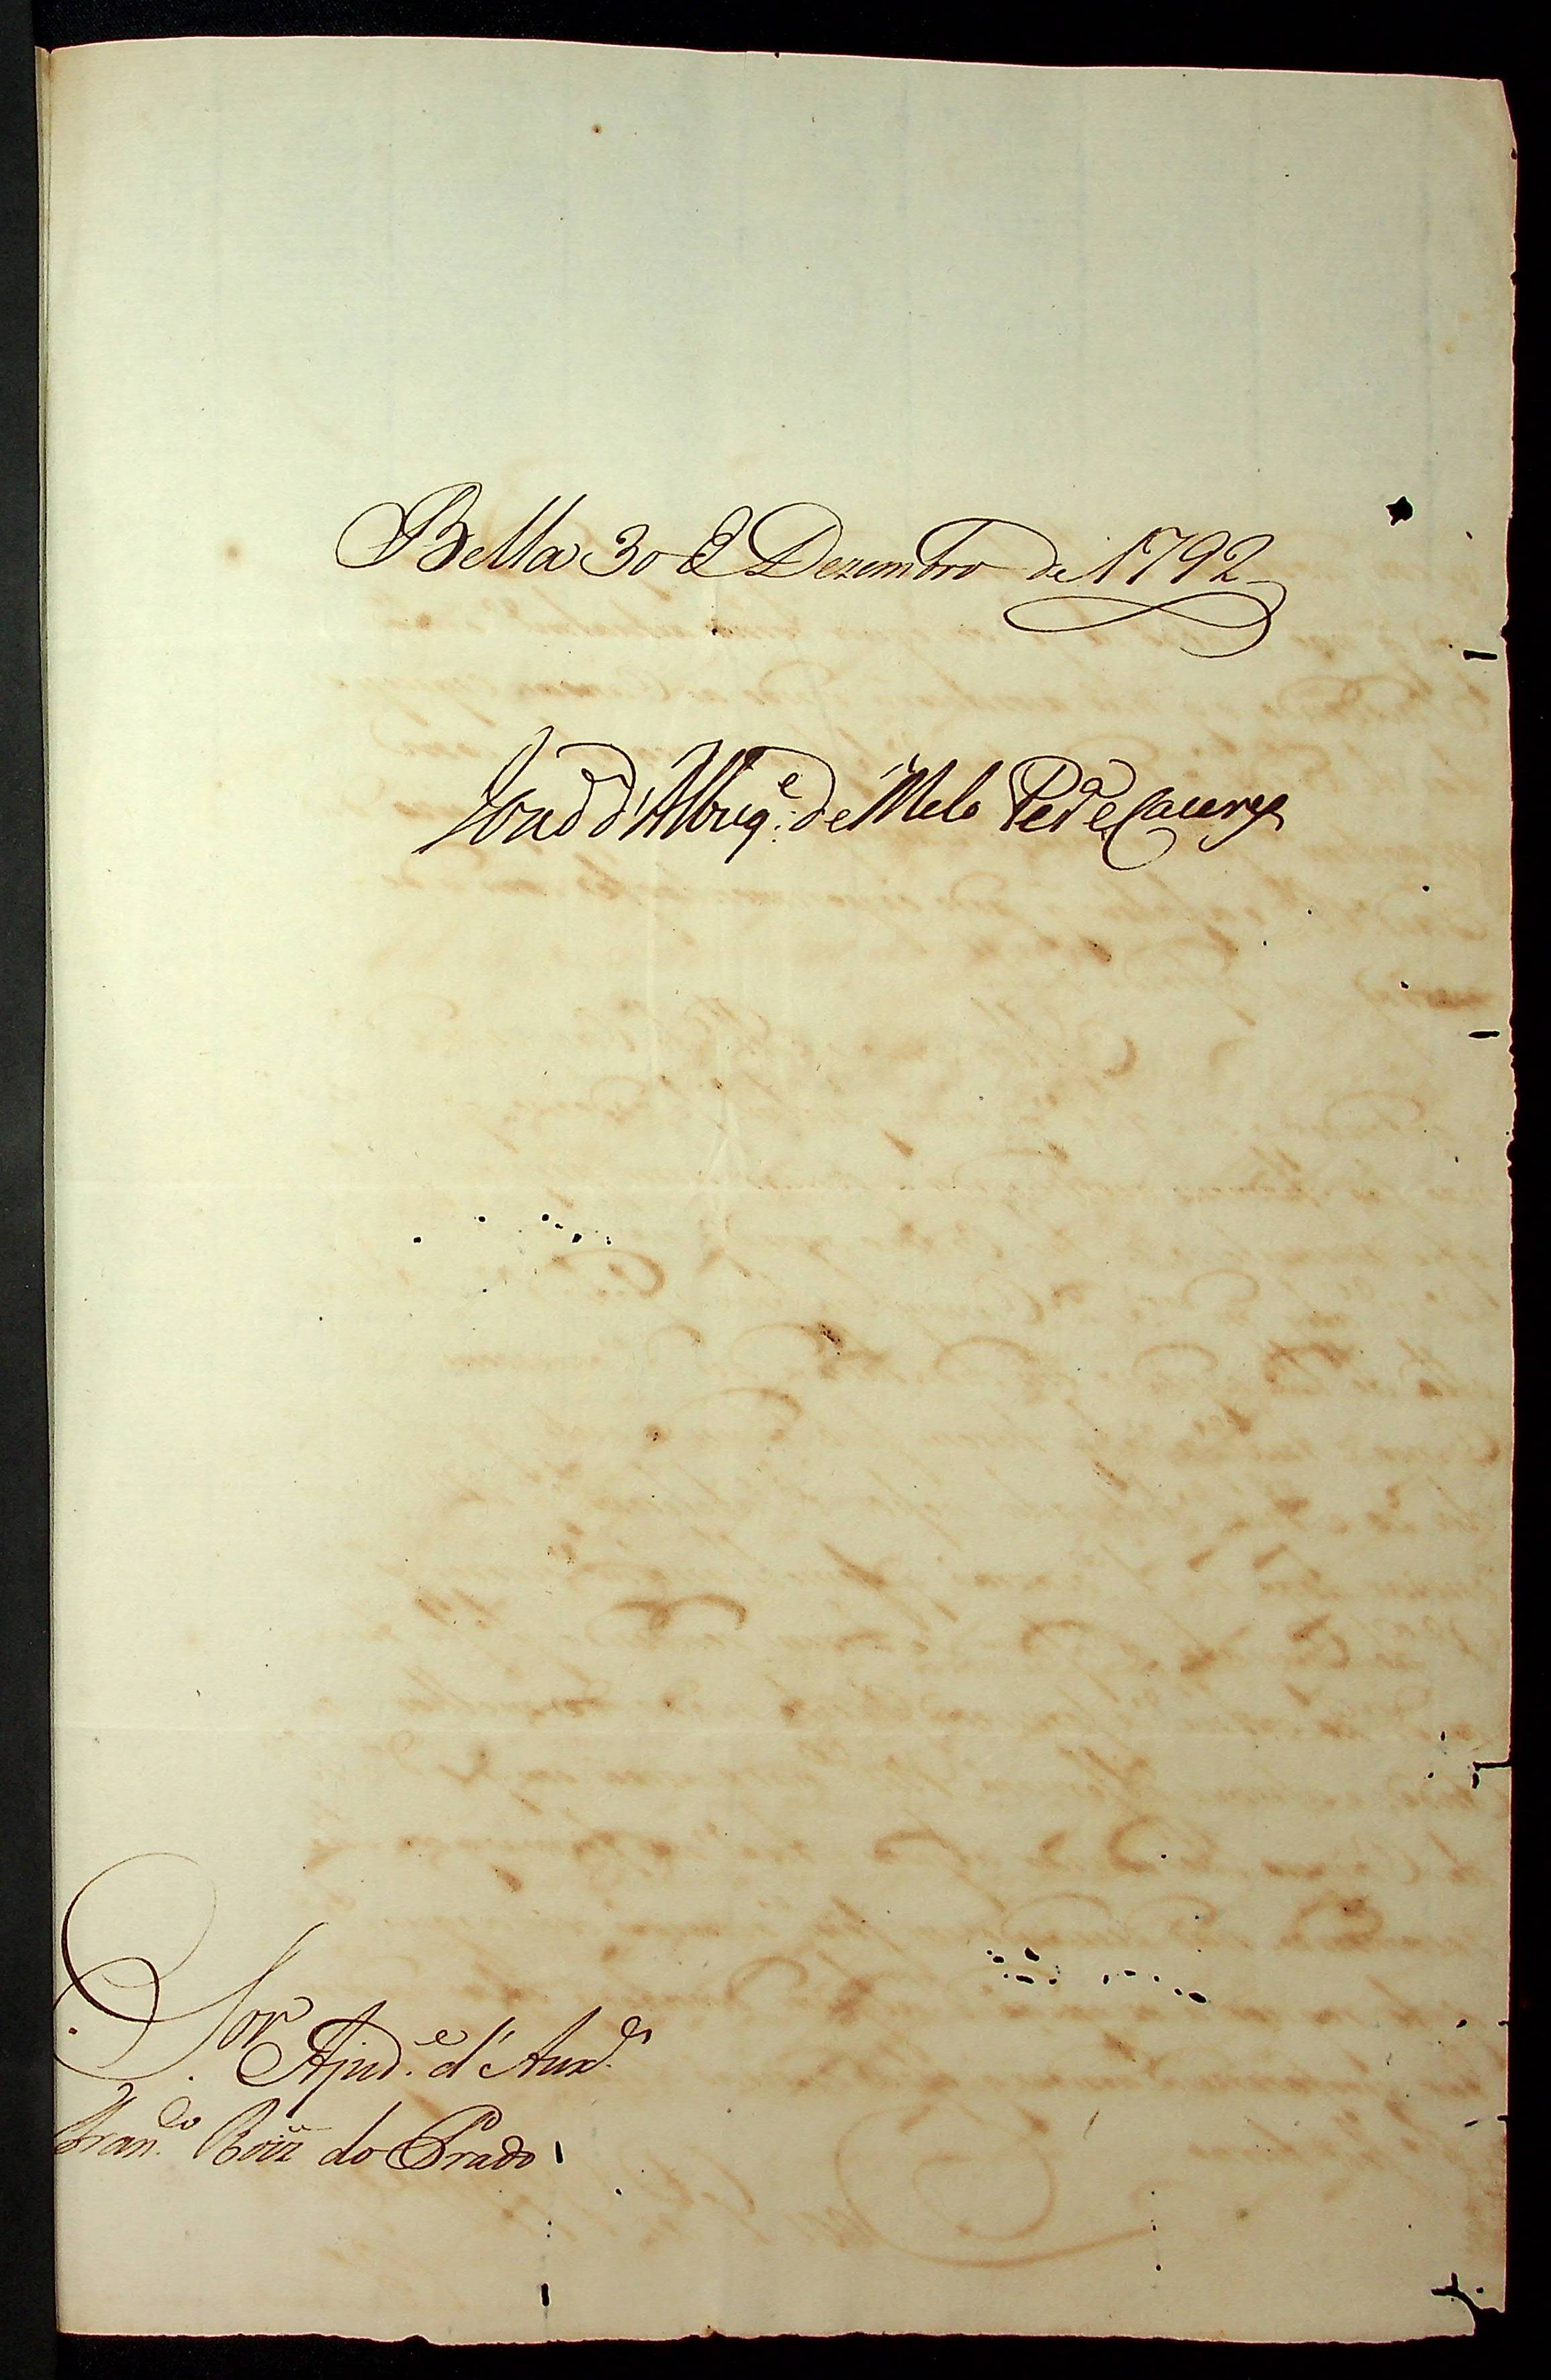 Bella 30 d Dezembro de 1792
João d'Albuq.e de Mello Per.a e Caceres
S.or Ajud.e d'Aux.es
Fran.co Roiz do Prado